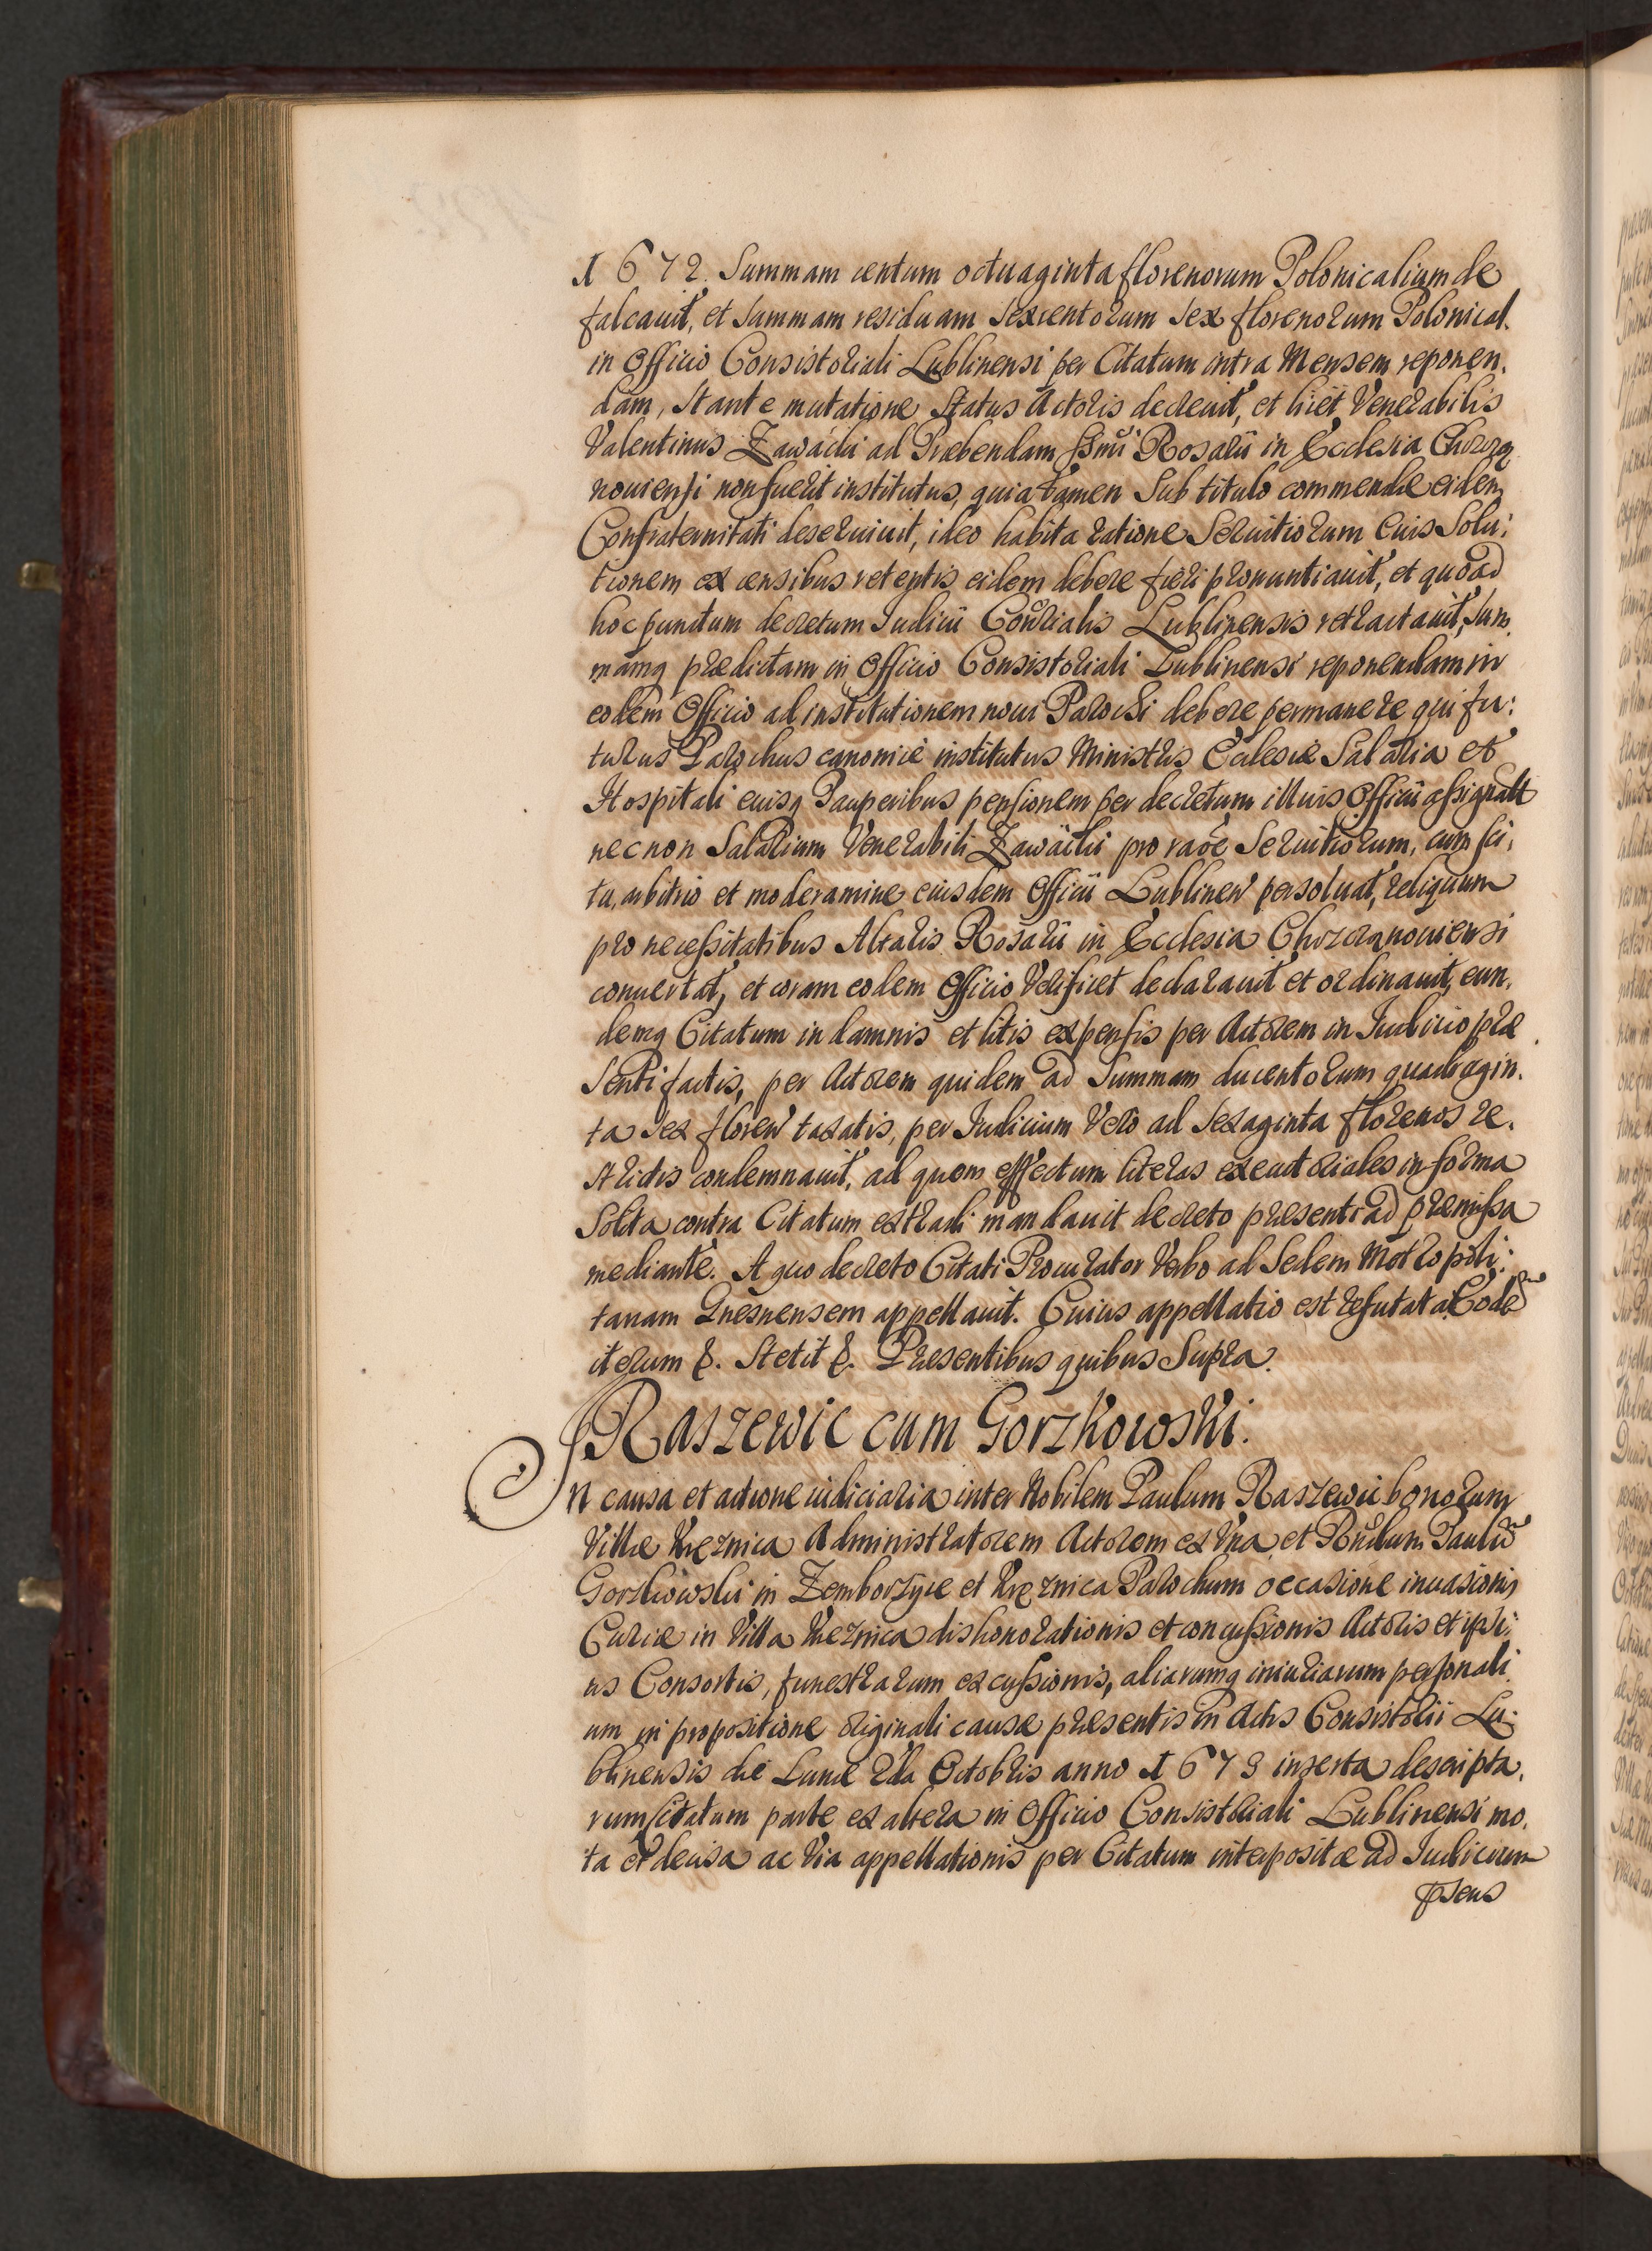 1672. Summam centum octuaginta florenorum Polonicalium de
falcauit, et Summam residuam Sexcentorum Sex florenorum Polonical.
in Officio Consistoriali Lublinensi per Citatum intra Mensem reponen.
dam, Stante mutatione Status Actoris decreuit, et licet Venerabilis
Valentinus Zawacki ad Præbendam SSmi Rosarii in Ecclesia Chrzcza
nouiensi non fuerit institutus, quia tamen Sub titulo commendæ eidem
Confraternitati deseruiuit, ideo habita ratione Seruitiorum Euis Solu:
tionem ex censibus retentis eidem debere fieri pronuntiauit, et quoad
hoc punctum decretum Iudicii Cônrialis Lublinensis retractauit, Sum
mamq prædictam in Officio Consistoriali Lublinensi reponendam in
eodem Officio ad institutionem noui Parochi debere permanere qui fu:
turus Parochus canonicè institutus Ministris Ecclesiæ Salaria et
Hospitali eiusq Pauperibus pensionem per decretum illuis Officii assignatt
necnon Salarium Venerabili Zawacki pro raõe Seruitiorum, cum
ta, arbitrio et moderamine euisdem Officii Lublinen persoluat, reliquum
pro necessitatibus Altaris Rosarii in Ecclesia Chrzcząnouiensi
conuertat, et coram eodem Officio Verificet declarauit et ordinauit, eun.
demq Citatum in damnis et litis expensis per Actorem in Iudicio præ
Senti factis, per Actorem quidem ad Summam ducentorum quadragin.
ta Sex floren taxatis, per Iudicium Vero ad Sexaginta florenos re.
strictis condemnauit, ad quem effectum literas executoriales in forma
Solita contra Citatum extradi mandauit decreto præsenti ad præmissa
mediante. A quo decreto Citati Procurator Verbo ad Sedem Metropoli:
tanam Gnesnensem appellauit. Cuius appellatio est refutata. Eode
iterum &. Stetit &. Præsentibus quibus Supra.
Raszewic cum Gorzkowski.
In causa et actione iudiciaria inter Nobilem Paulum Raszewic bonorum
Villæ Kręznica Administratorem Actorem ex Vna et Rñdum Paulũ
Gorzkowski in Zemborzyce et Kręznica Parochum occasione inuasionis
Curiæ in Villa Kręznica dishonorationis et concussionis Actoris et ipsi:
us Consortis, funestrarum excussionis, aliarumq iniuriarum personali
um in propositione originali causæ præsentis in Actis Consistorii Lu:
blinensis die Lunæ 2da Octobris anno 1673 inserta descripta.
rum Citatum parte ex altera in Officio Consistoriali Lublinensi mo.
ta et decisa ac Via appellationis per Citatum interpositæ ad Iudicium
psens